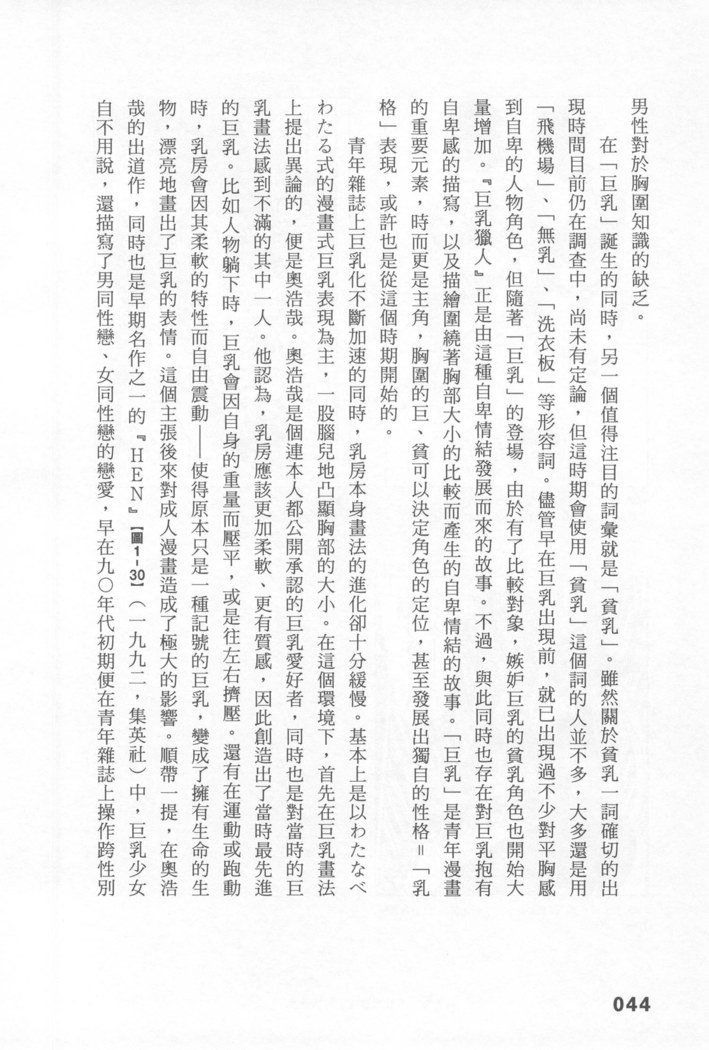 男性對於胸圍知識的缺乏。
在「巨乳」誕生的同時，另一個值得注目的詞彙就是「貧乳」。雖然關於貧乳一詞確切的出
現時間目前仍在調查中，尚未有定論，但這時期會使用「貧乳」這個詞的人並不多，大多還是用
「飛機場」、「無乳」、「洗衣板」等形容詞。儘管早在巨乳出現前，就已出現過不少對平胸感
到自卑的人物角色，但隨著「巨乳」的登場，由於有了比較對象，嫉妒巨乳的貧乳角色也開始大
量增加。『巨乳獵人』正是由這種自卑情結發展而來的故事。不過，與此同時也存在對巨乳抱有
自卑感的描寫，以及描繪圍繞著胸部大小的比較而產生的自卑情結的故事。「巨乳」是青年漫畫
的重要元素，時而更是主角，胸圍的巨、貧可以決定角色的定位，甚至發展出獨自的性格＝「乳
格」表現，或許也是從這個時期開始的。
青年雜誌上巨乳化不斷加速的同時，乳房本身畫法的進化卻十分緩慢。基本上是以わたなべ
わたる式的漫畫式巨乳表現為主，一股腦兒地凸顯胸部的大小。在這個環境下，首先在巨乳畫法
上提出異論的，便是奧浩哉。奧浩哉是個連本人都公開承認的巨乳愛好者，同時也是對當時的巨
乳畫法感到不滿的其中一人。他認為，乳房應該更加柔軟、更有質感，因此創造出了當時最先進
的巨乳。比如人物躺下時，巨乳會因自身的重量而壓平，或是往左右擠壓。還有在運動或跑動
時，乳房會因其柔軟的特性而自由震動——使得原本只是一種記號的巨乳，變成了擁有生命的生
物，漂亮地畫出了巨乳的表情。這個主張後來對成人漫畫造成了極大的影響。順帶一提，在奧浩
哉的出道作，同時也是早期名作之一的『HEN』【圖1-30】（一九九二，集英社）中，巨乳少女
自不用說，還描寫了男同性戀、女同性戀的戀愛，早在九〇年代初期便在青年雜誌上操作跨性別
044